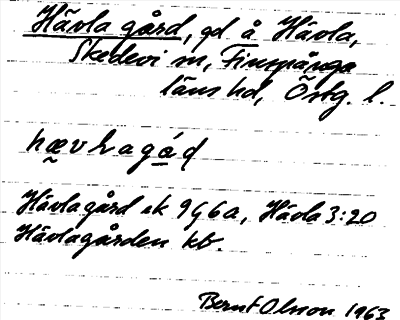 Hävla gård, gd å Hävla,
Skedevi sn, Finspånga
läns hd, Östg. l.
hævlagád
Hävlagård ek 9G6a, Hävla 3:20
Hävlagården kb.
Bernt Olsson 1963